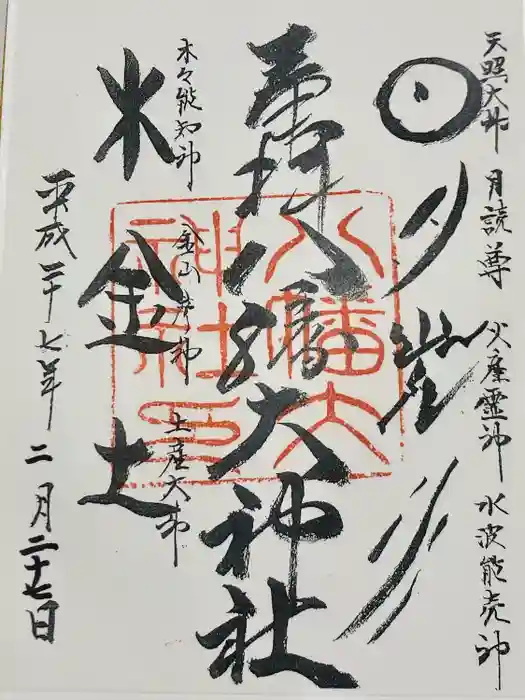 天照大神 月読尊 火産霊神 水波能売神
月
奉拝 八幡大神社
八幡大
神社印
木々能知神 金山彦神 土産大神
木 金 土
平成二十七年 二月二十七日